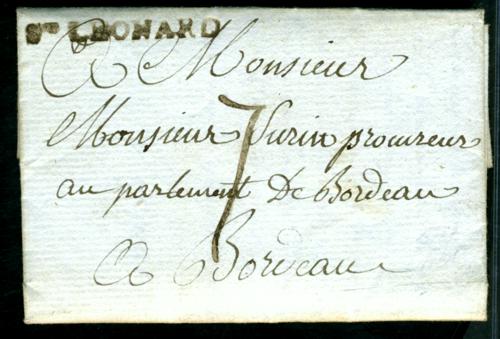 ST LEONARD
A Monsieur
Monsieur Surin procureur
7
au parlement De Bordeau
A Bordeau